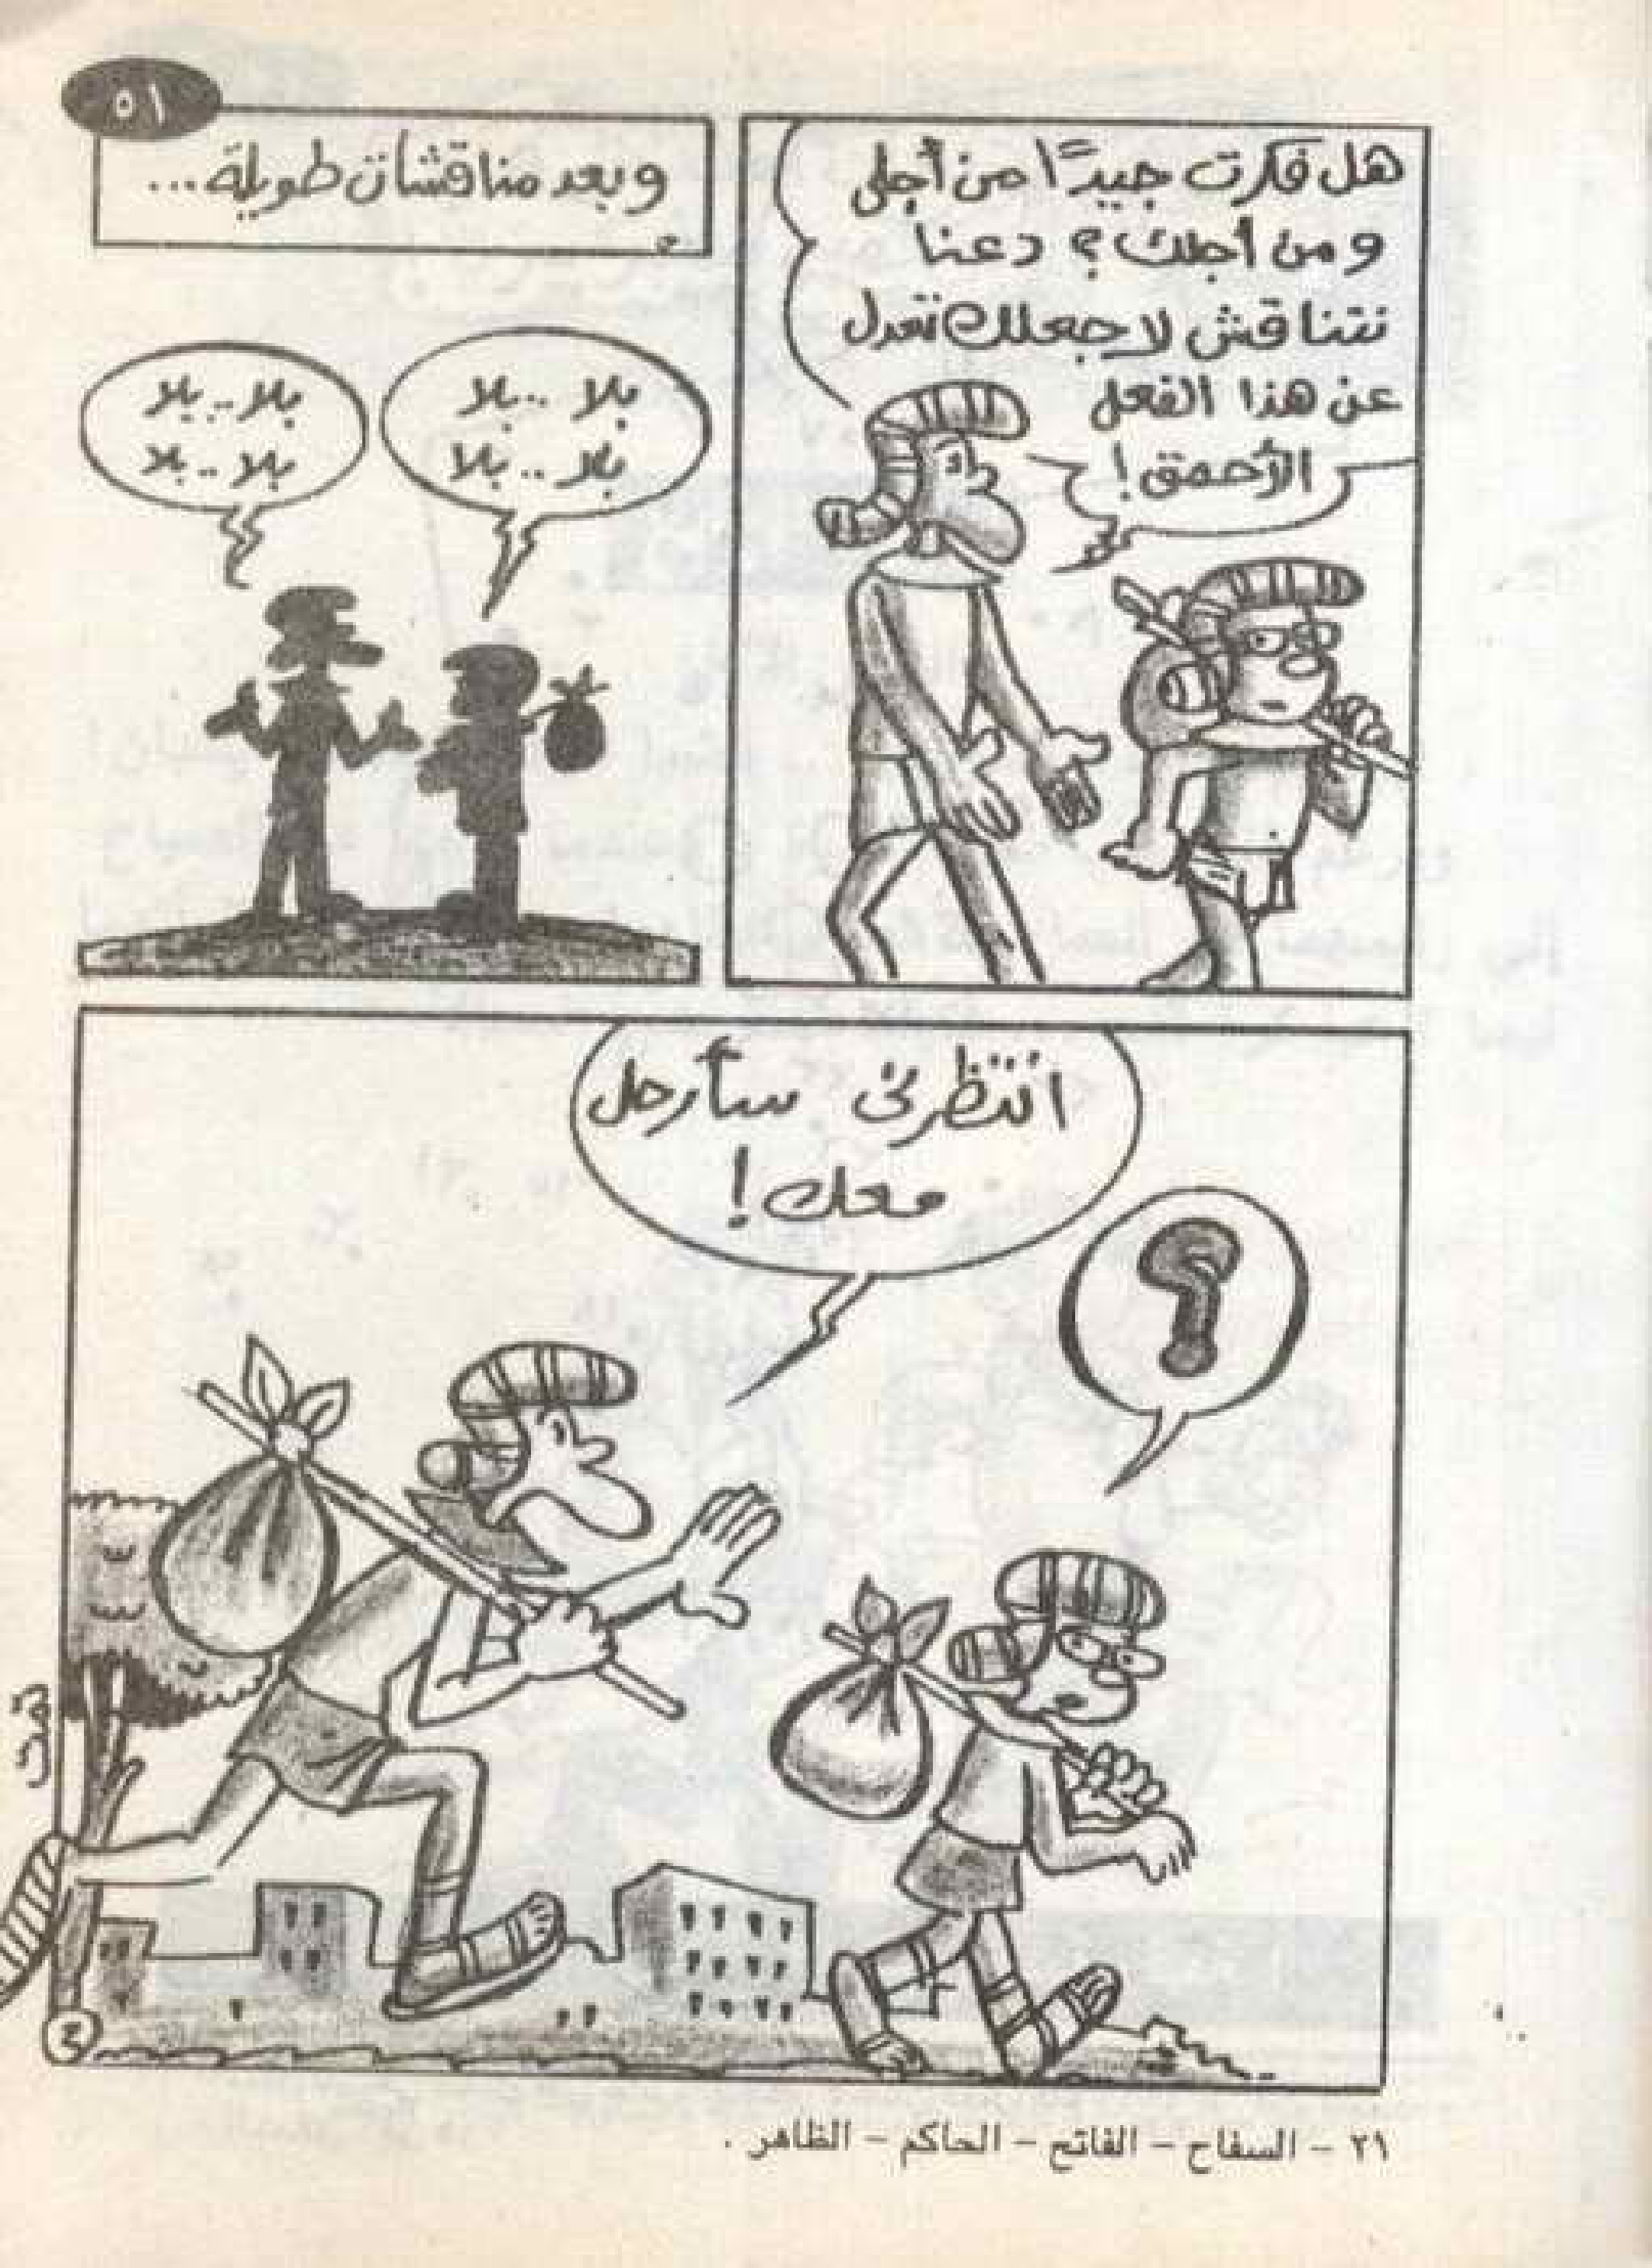 ٥١
هل فكرت جيدًا من أجلى
ومن أجلك؟ دعنا
نتناقش لاجعلك تعدل
عن هذا الفعل
الأحمق!
وبعد مناقشات طويلة...
بلا .. بلا
بلا .. بلا
بلا .. بلا
بلا .. بلا
انتظرنى سأرحل
معك!
؟
تمت
٤
٢١ - السفاح - الفاتح - الحاكم - الظاهر .